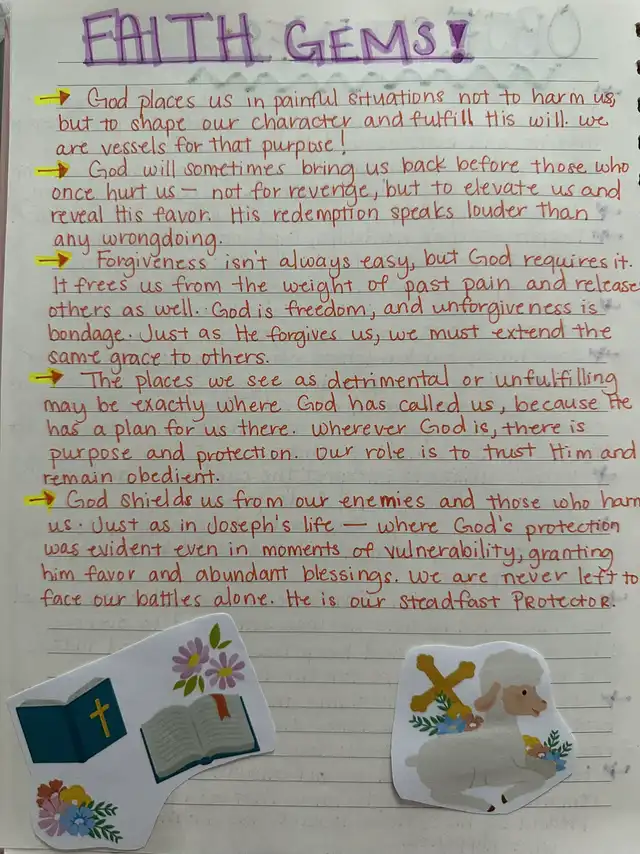 FAITH GEMS!
→ God places us in painful situations not to harm us,
but to shape our character and fulfill His will. we
are vessels for that purpose!
→ God will sometimes bring us back before those who
once hurt us — not for revenge, but to elevate us and
reveal His favor. His redemption speaks louder than
any wrongdoing.
→ Forgiveness isn't always easy, but God requires it.
It frees us from the weight of past pain and release
others as well. God is freedom, and unforgiveness is
bondage. Just as He forgives us, we must extend the
same grace to others.
→ The places we see as detrimental or unfulfilling
may be exactly where God has called us, because He
has a plan for us there. Wherever God is, there is
purpose and protection. Our role is to trust Him and
remain obedient.
→ God shields us from our enemies and those who harm
us. Just as in Joseph's life — where God's protection
was evident even in moments of vulnerability, granting
him favor and abundant blessings. We are never left to
face our battles alone. He is our STEADFAST PROTECTOR.